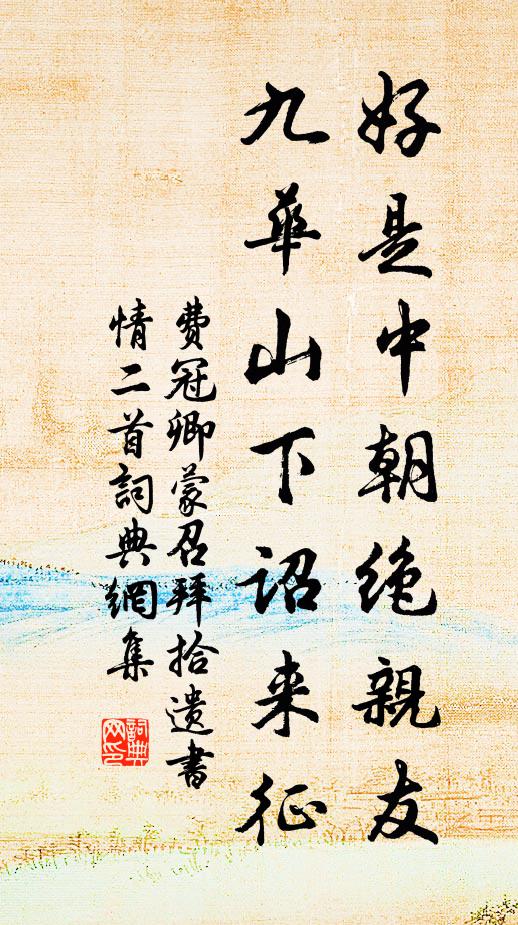 好是中朝绝親友
九華山下诏来征
費冠卿蒙召拜拾遗書
情二首詞典網集
詞典网印